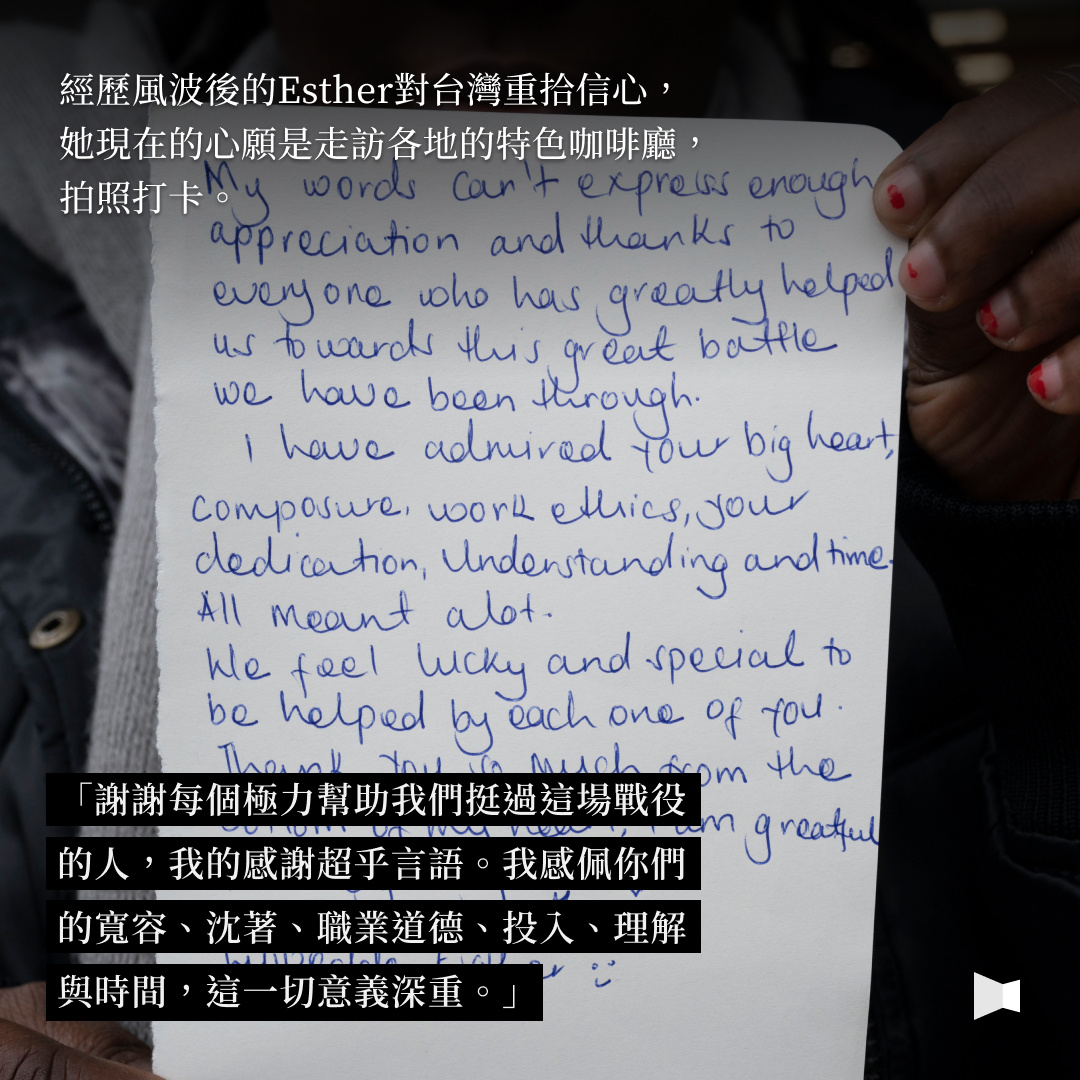 經歷風波後的Esther對台灣重拾信心，
她現在的心願是走訪各地的特色咖啡廳，
拍照打卡。
My words can't express enough
appreciation and thanks to
everyone who has greatly helped
us towards this great battle
we have been through.
I have admired your big heart,
composure, work ethics, your
dedication, Understanding and time.
All meant alot.
We feel lucky and special to
be helped by each one of you.
Thank you so much from the
am greatful
「謝謝每個極力幫助我們挺過這場戰役
的人，我的感謝超乎言語。我感佩你們
的寬容、沈著、職業道德、投入、理解
與時間，這一切意義深重。」